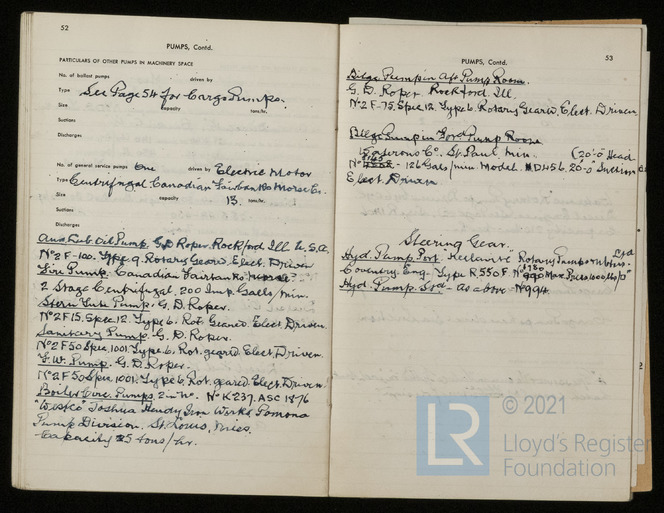 52
PUMPS, Contd.
PARTICULARS OF OTHER PUMPS IN MACHINERY SPACE
No. of ballast pumps driven by
Type See Page 54 for Cargo Pumps.
Size capacity tons/hr.
Suctions
Discharges
No. of general service pumps One driven by Electric Motor
Type Centrifugal. Canadian Fairbanks Morse Co.
Size capacity 13 tons/hr.
Suctions
Discharges
Aux Lub. Oil Pump. G.D. Roper. Rockford Ill. U.S.A.
No 2 F-100. Type 9. Rotary Geared Elect. Driven
Fire Pump. Canadian Fairbanks Morse
2 Stage Centrifugal, 200 Imp. Galls/min.
Stern Tube Pump. G.D. Roper.
No 2F15, Spec. 12. Type 6. Rot. Geared. Elect. Driven.
Sanitary Pump. G.D. Roper.
No 2 F50 Spec. 1001. Type 6. Rot. geared. Elect. Driven.
F.W. Pump. G.D. Roper.
No 2 F50 Spec. 1001. Type 6. Rot. geared. Elect. Driven.
Boiler Circ. Pumps. 2 in No. No K237. ASC 1876
"Westco" Joshua Hendy Iron Works Pomona
Pump Division. St. Louis,
Capacity tons/hr.
53
PUMPS, Contd.
Bilge Pump in Aft Pump Room.
G.D. Roper Rockford. Ill.
No 2 F-75. Spec 12. Type 6. Rotary Geared. Elect. Driven
Bilge Pump in Ford Pump Room
Co. St. Paul Min. (20'-0" Head
No - 126 Gals/min. Model. 20'-0" Suction
Elect. Driven
Steering Gear.
Hyd. Pump. Port. Rotary Pumps & Motors. Ltd
Coventry. Eng. Type R550F. No 990 Max. Press
Hyd. Pump. Std - As above - No 994.
© 2021
LR
Lloyd's Register
Foundation